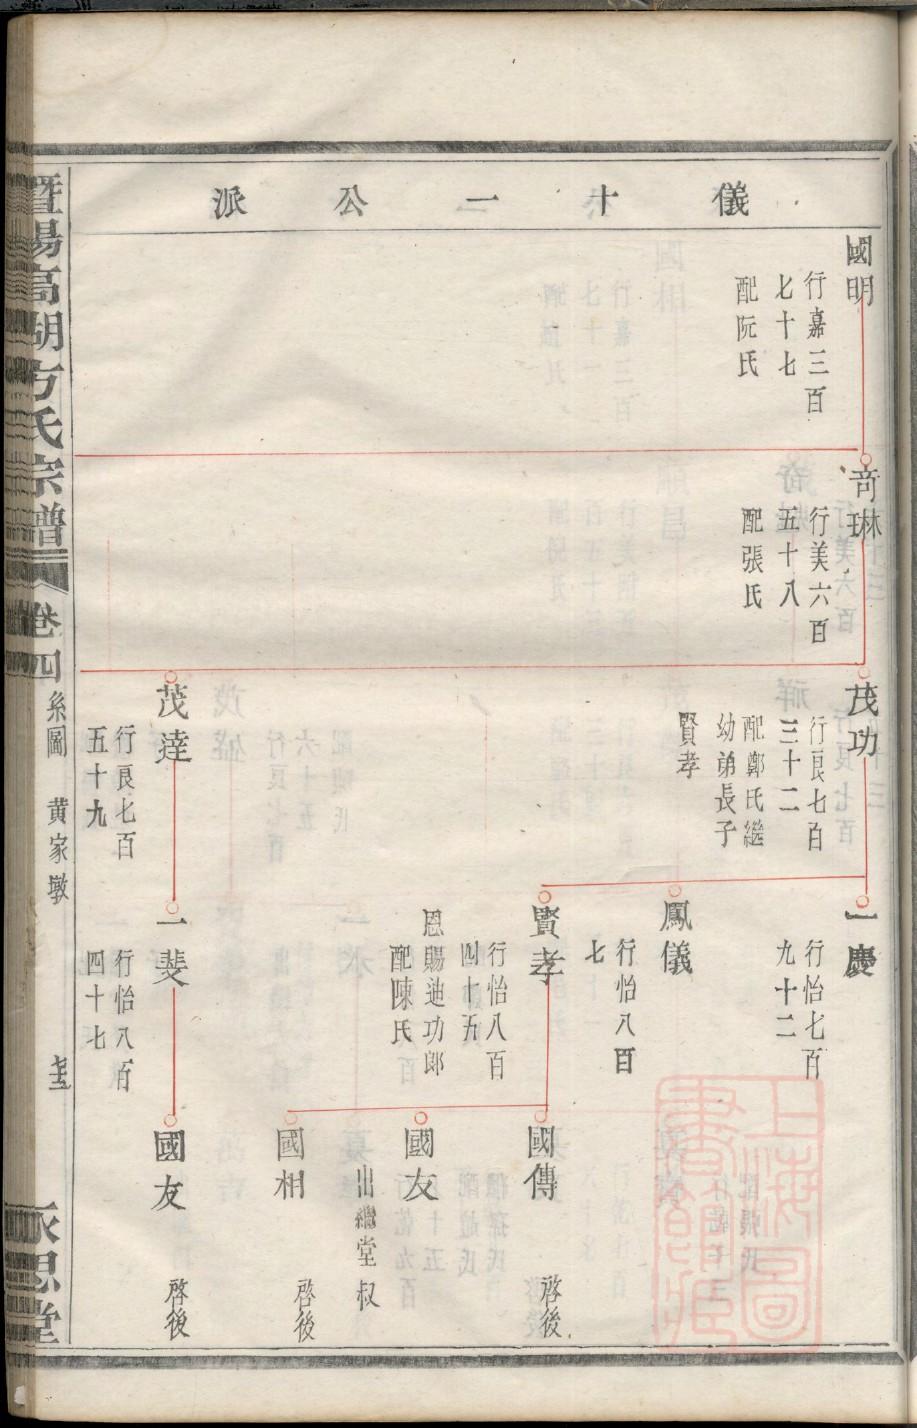 儀十一公派
國明
行嘉三百
七十七
配阮氏
奇琳
行美六百
五十八
配張氏
茂功
行良七百
三十二
配鄭氏繼
幼弟長子
賢孝
茂達
行良七百
五十九
一慶
行怡七百
九十二
鳳儀
行怡八百
七
賢孝
行怡八百
四十五
恩賜迪功郎
配陳氏
一斐
行怡八百
四十七
國傳
啓後
國友
出繼堂叔
國相
啓後
國友
啓後
暨陽高湖方氏宗譜
卷四
系圖 黄家墩
永思堂
上海圖書館藏